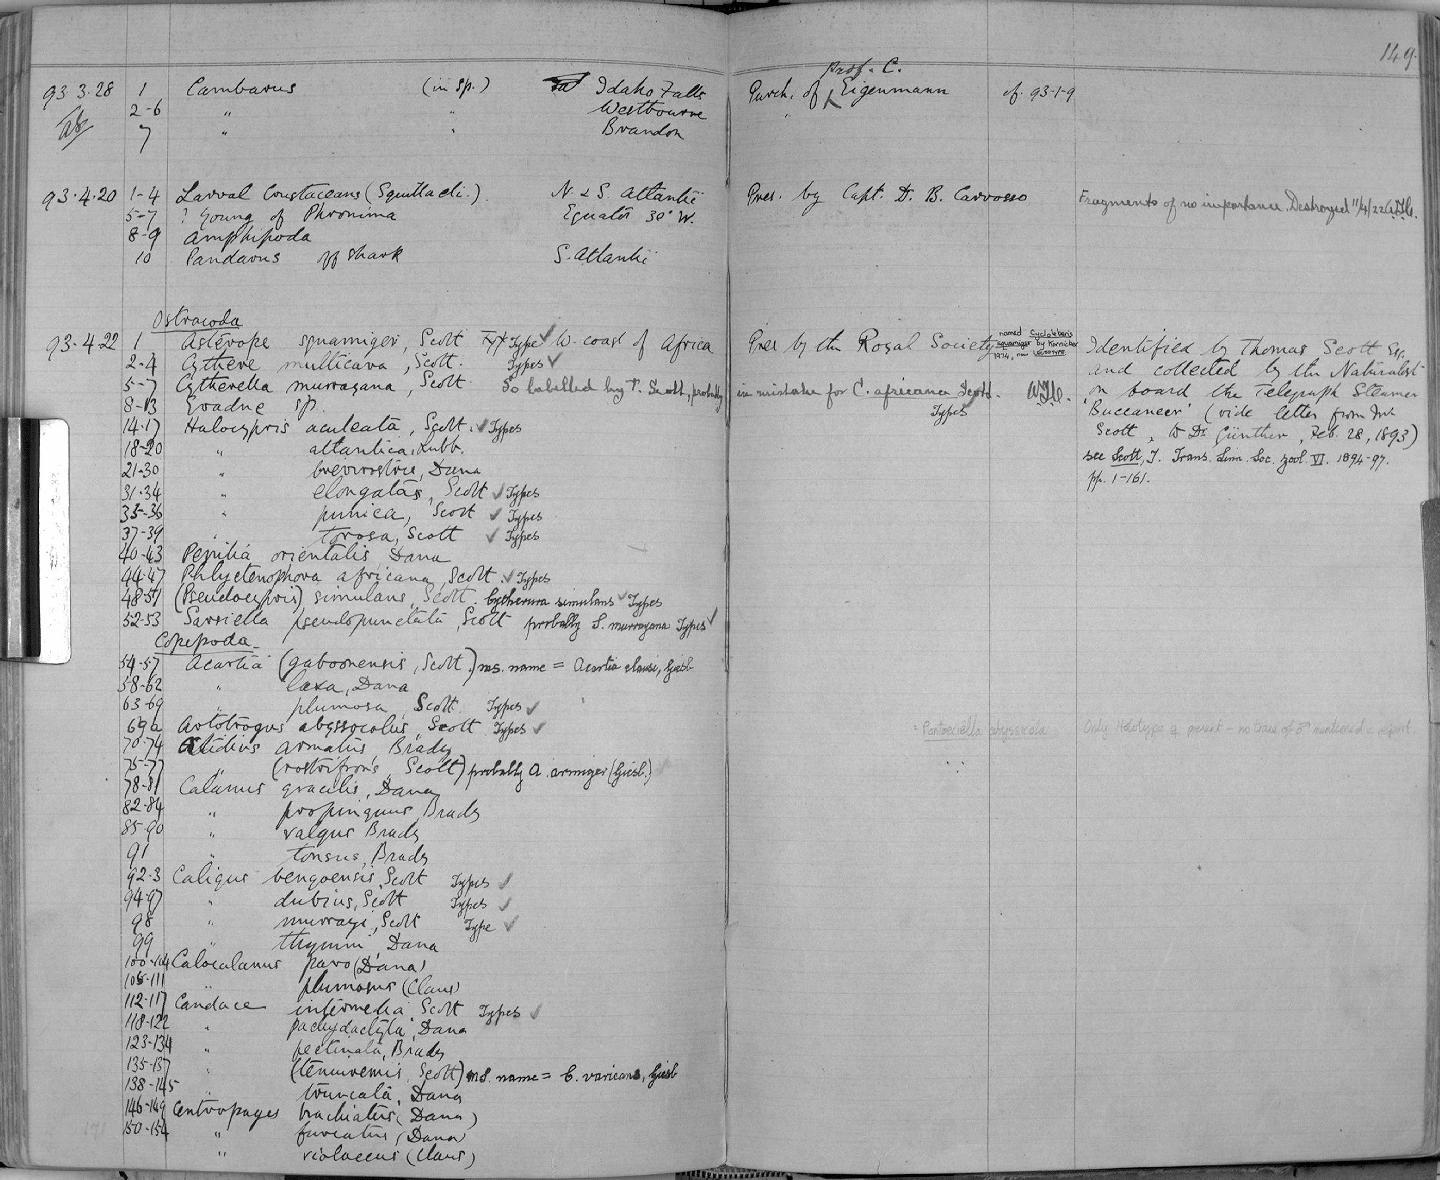 149.
93.3.28 1 Cambarus (in sp.) Idaho Falls Purch. of Prof. C. Eigenmann cf. 93-1-9
2-6 " " Westbourne "
7 " " Brandon
93.4.20 1-4 Larval Crustaceans (Squillacti.) N. & S. Atlantic Pres. by Capt. D. B. Carvosso Fragments of no importance. Destroyed
5-7 ? Young of Phronima Equator 30° W.
8-9 Amphipoda
10 Pandarus off shark S. Atlantic
Ostracoda
93.4.22 1 Asterope squamiger, Scott Type ✓ W. coast of Africa Pres by the Royal Society named Cycloleberis squamiger by Kornicker 1974, Identified by Thomas Scott Esq.
2-4 Cythere multicava, Scott. Types ✓ and collected by the Naturalist
5-7 Cytherella murrayana, Scott So labelled by T. Scott, probably in mistake for C. africana Scott. on board the Telegraph Steamer
8-13 Evadne sp. Types 'Buccaneer' (vide letter from Mr
14-17 Halocypris aculeata, Scott. ✓ Types Scott, to Dr Günther, Feb. 28, 1893)
18-20 " atlantica, Lubb. see Scott, T. Trans. Linn. Soc. zool. VI. 1894-97.
21-30 " brevirostris, Dana pp. 1-161.
31-34 " elongata, Scott ✓ Types
35-36 " punica, Scott ✓ Types
37-39 " torosa, Scott ✓ Types
40-43 Penilia orientalis Dana
44-47 Phlyctenophora africana, Scott. ✓ Types
48-51 (Pseudocypris) simulans, Scott. Cytherura simulans ✓ Types
52-53 Sarsiella pseudopunctata, Scott probably S. murrayana Types ✓
Copepoda
54-57 Acartia (gaboonensis, Scott.) ms. name = Acartia clausi, Giesb
58-62 " laxa, Dana
63-69 " plumosa, Scott. Types ✓
69a Artotrogus abyssocolus, Scott Types ✓ = Pontoeciella abyssicola Only Holotype ♀ present - no trace of ♂ mentioned in report.
70-74 Ætidius armatus Brady
75-77 " (rostrifrons, Scott) probably A. armiger (Giesb.)
78-81 Calanus gracilis, Dana
82-84 " propinquus Brady
85-90 " valgus Brady
91 " tonsus, Brady
92-3 Caligus bengoensis, Scott Types ✓
94-97 " dubius, Scott Types ✓
98 " murrayi, Scott Type ✓
99 " thymni Dana
100-104 Calocalanus pavo (Dana)
105-111 " plumosus (Claus)
112-117 Candace intermedia, Scott Types ✓
118-122 " pachydactyla, Dana
123-134 " pectinata, Brady
135-137 " (tenuiremis, Scott) ms. name = C. varicans, Giesb
138-145 " truncata, Dana
146-149 Centropages brachiatus (Dana)
150-154 " furcatus, (Dana)
" violaceus (Claus)